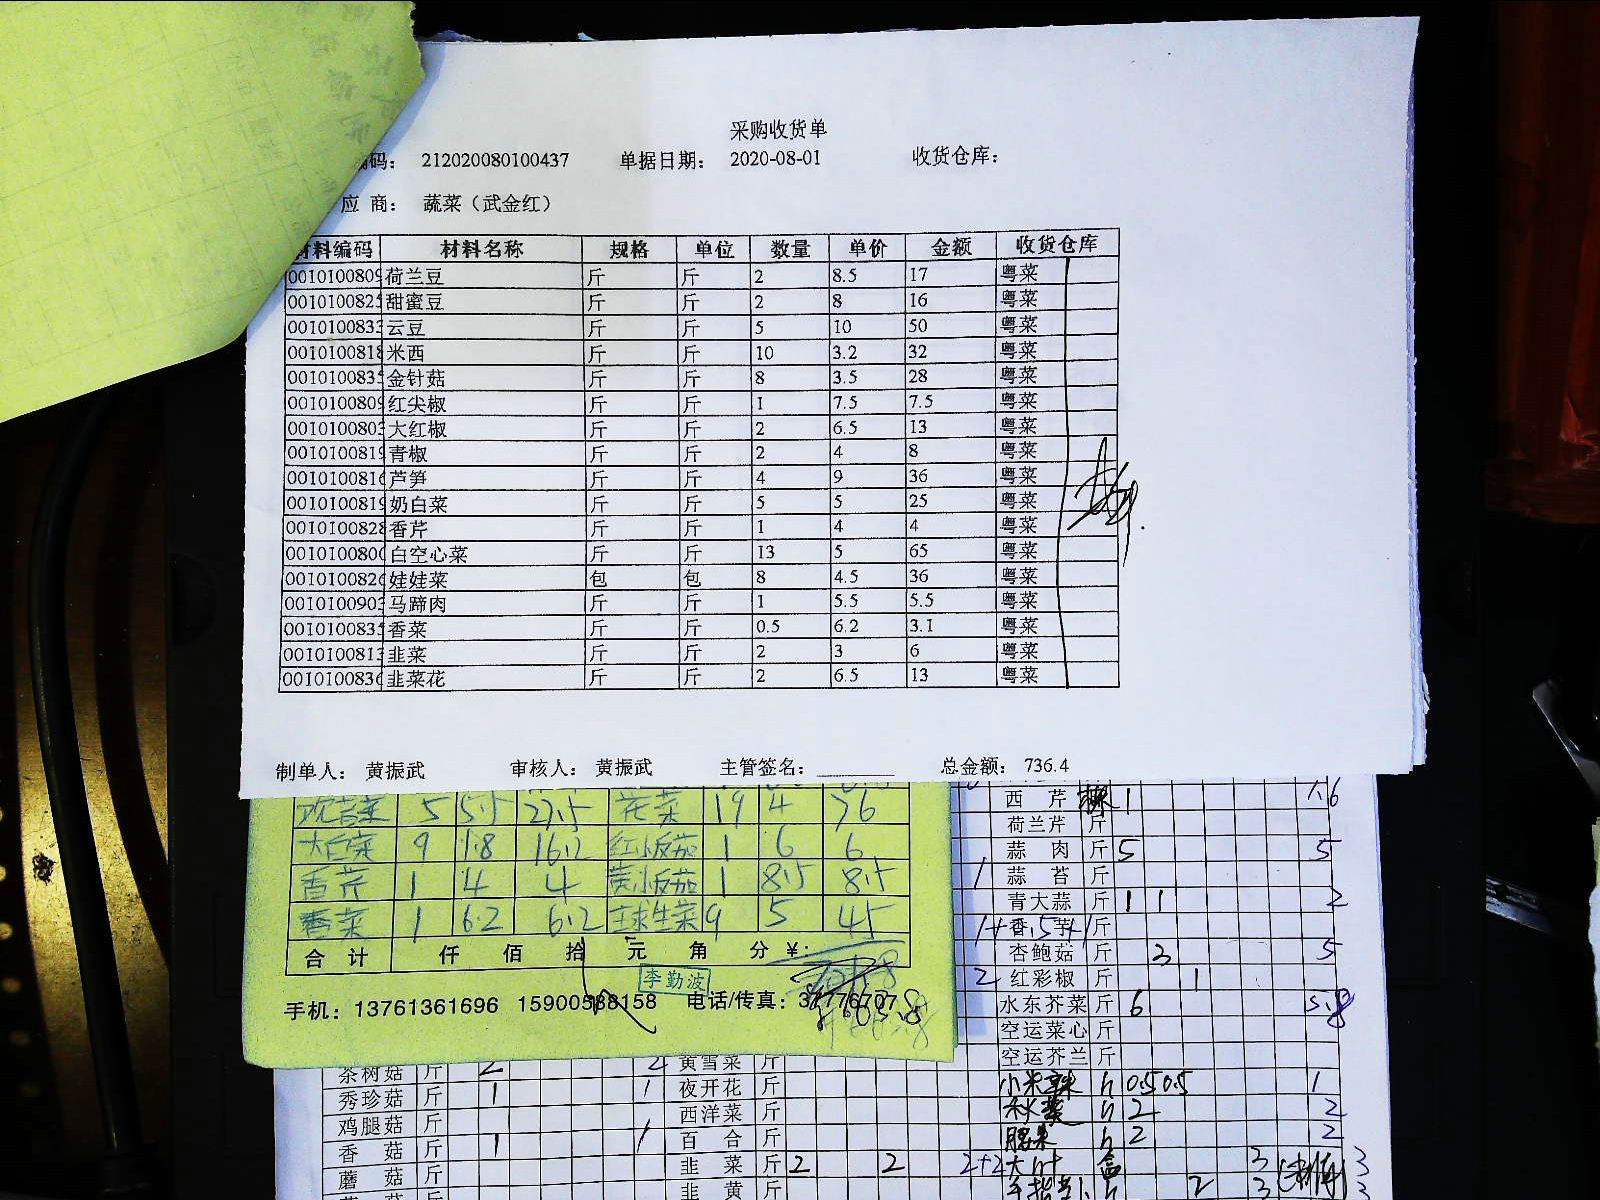 采购收货单
编码： 212020080100437 单据日期： 2020-08-01 收货仓库：
应 商： 蔬菜（武金红）
材料编码 材料名称 规格 单位 数量 单价 金额 收货仓库
001010080 荷兰豆 斤 斤 2 8.5 17 粤菜
001010082 甜蜜豆 斤 斤 2 8 16 粤菜
001010083 云豆 斤 斤 5 10 50 粤菜
001010081 米西 斤 斤 10 3.2 32 粤菜
001010083 金针菇 斤 斤 8 3.5 28 粤菜
001010080 红尖椒 斤 斤 1 7.5 7.5 粤菜
001010080 大红椒 斤 斤 2 6.5 13 粤菜
001010081 青椒 斤 斤 2 4 8 粤菜
001010081 芦笋 斤 斤 4 9 36 粤菜
001010081 奶白菜 斤 斤 5 5 25 粤菜
001010082 香芹 斤 斤 1 4 4 粤菜
001010080 白空心菜 斤 斤 13 5 65 粤菜
001010082 娃娃菜 包 包 8 4.5 36 粤菜
001010090 马蹄肉 斤 斤 1 5.5 5.5 粤菜
001010083 香菜 斤 斤 0.5 6.2 3.1 粤菜
001010081 韭菜 斤 斤 2 3 6 粤菜
001010083 韭菜花 斤 斤 2 6.5 13 粤菜
制单人： 黄振武 审核人： 黄振武 主管签名： 总金额： 736.4
5 5.5 27.5 花菜 19 4 76
大白菜 9 1.8 16.2 红小番茄 1 6 6
香芹 1 4 4 黄小番茄 1 8.5 8.5
香菜 1 6.2 6.2 球生菜 9 5 45
合 计 仟 佰 拾 元 角 分 ￥：
李勤波
手机：13761361696 15900588158 电话/传真：37776707
西 芹 1 1.6
荷兰芹 斤
蒜 肉 斤 5 5
蒜 苔 斤
青大蒜 斤 1 1 2
香 芋 斤
杏鲍菇 斤 3 5
红彩椒 斤 1
水东芥菜 斤 6 5.8
空运菜心 斤
空运芥兰 斤
小米辣 0.5 0.5 1
秋葵 2 2
腰果 2 2
大叶 盒 3 3
茶树菇 斤 2 2 黄雪菜 斤
秀珍菇 斤 1 1 夜开花 斤
鸡腿菇 斤 西洋菜 斤
香 菇 斤 1 1 百 合 斤
蘑 菇 斤 韭 菜 斤 2 2 2+2
韭 黄 斤